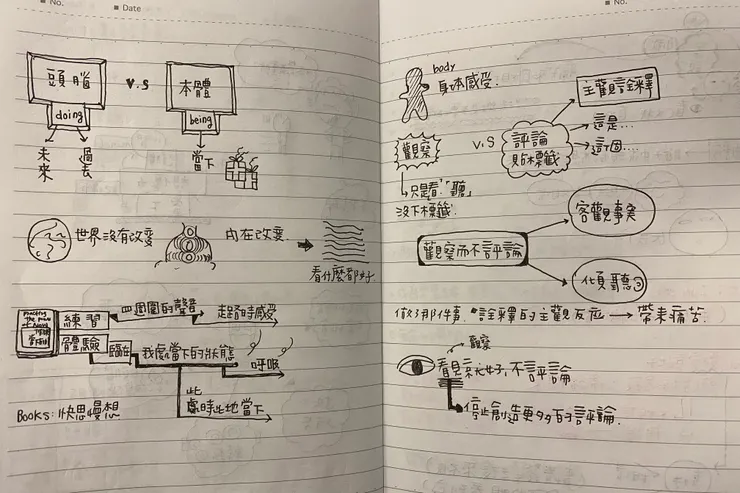 No.
Date
頭腦
v.s
本體
doing
being
未來
過去
當下
世界沒有改變
內在改變
看什麼都好
練習
四週圍的聲音
起時感受
體驗
臨在
我處當下的狀態
呼吸
此
處時此地當下
Books: 快思慢想
No.
Date
body
身体感受.
主觀詮釋
觀察
v.s
評論
貼標籤
這是...
這個...
只是看、聽
沒下標籤
客觀事實
觀察而不評論
傾聽
做了那件事. 詮釋的主觀反应 → 帶來痛苦.
觀察
看見, 不評論
停止創造更多的評論.